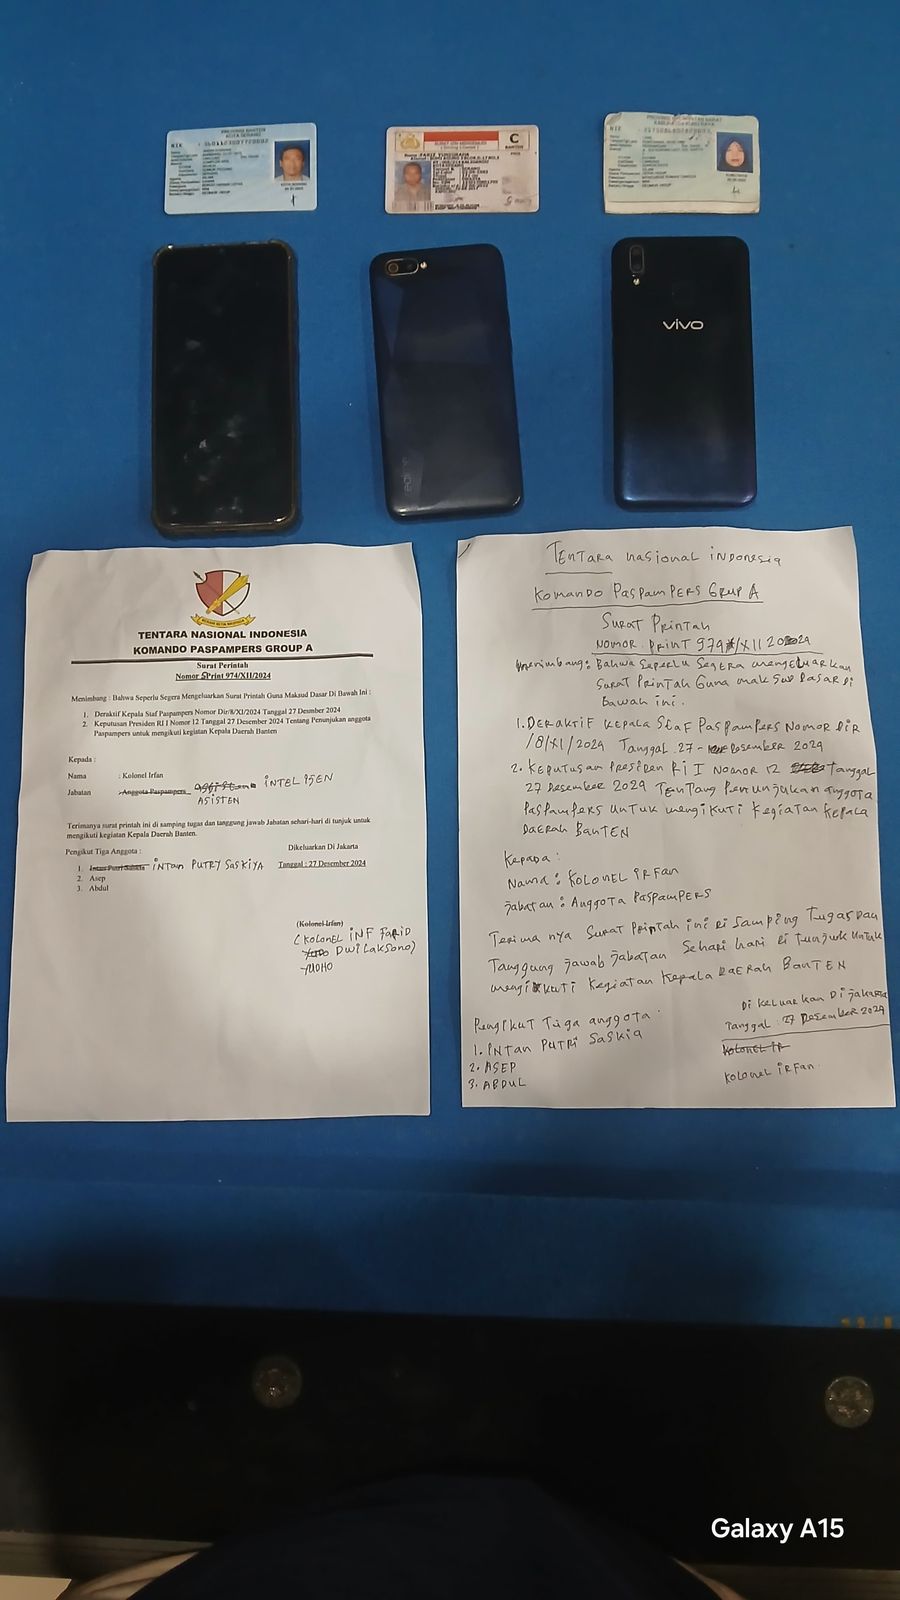 PROVINSI BANTEN
KOTA SERANG
NIK
SURAT IZIN MENGEMUDI
(Driving License)
C
BANTEN
KABUPATEN KUBU RAYA
NIK
realme
vivo
TENTARA NASIONAL INDONESIA
KOMANDO PASPAMPERS GROUP A
Surat Perintah
Nomor SPrint 974/XII/2024
Menimbang : Bahwa Seperlu Segera Mengeluarkan Surat Printah Guna Maksud Dasar Di Bawah Ini :
1. Deraktif Kepala Staf Paspampers Nomor Dir/8/XI/2024 Tanggal 27 Desmber 2024
2. Keputusan Presiden RI I Nomor 12 Tanggal 27 Desember 2024 Tentang Penunjukan anggota
Paspampers untuk mengikuti kegiatan Kepala Daerah Banten
Kepada :
Nama : Kolonel Irfan
Jabatan : Anggota Paspampers INTELIJEN
ASISTEN
Terimanya surat printah ini di samping tugas dan tanggung jawab Jabatan sehari-hari di tunjuk untuk
mengikuti kegiatan Kepala Daerah Banten.
Pengikut Tiga Anggota :
Dikeluarkan Di Jakarta
1. Intan Putri Saskia INTAN PUTRY SASKIYA
Tanggal : 27 Desember 2024
2. Asep
3. Abdul
(Kolonel Irfan)
(KOLONEL INF FARID
DWI LAKSONO)
YUDHO
TENTARA nasional INDONESIA
KOMANDO PASPAMPERS GRUP A
SURAT PRINTAH
NOMOR PRINT 974/XII 2024
menimbang : Bahwa Seperlu Segera mengeluarkan
Surat Printah Guna maksud Dasar Di
Bawah ini.
1. DERAKTIF KEPALA STAF PASPAMPERS NOMOR DIR
/8/XI/2024 Tanggal 27 - Desember 2024
2. KEPUTUSAN PRESIDEN RI I NOMOR 12 Tanggal
27 Desember 2024 Tentang Penunjukan anggota
Paspampers untuk mengikuti Kegiatan Kepala
DAERAH BANTEN
Kepada :
Nama : KOLONEL IRFAN
Jabatan : Anggota PASPAMPERS
Terima nya Surat Printah ini Di Samping Tugas Dan
Tanggung Jawab Jabatan Sehari hari Di Tunjuk untuk
mengikuti Kegiatan Kepala DAERAH BANTEN
Di Keluarkan Di Jakarta
Tanggal : 27 Desember 2024
Pengikut Tiga anggota :
1. INTAN PUTRI SASKIA
KOLONEL IR
2. ASEP
KOLONEL IRFAN.
3. ABDUL
Galaxy A15